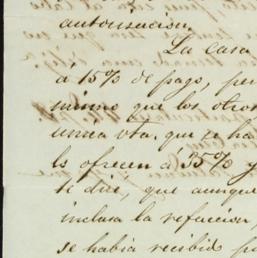 autorizacion,
La casa
á 15% de pago, per
mismo que los otros
unica vta. que se ha
ls ofrecen á 35% y
te diré, que aunque
inclusa la refaccion,
se habia recibido p